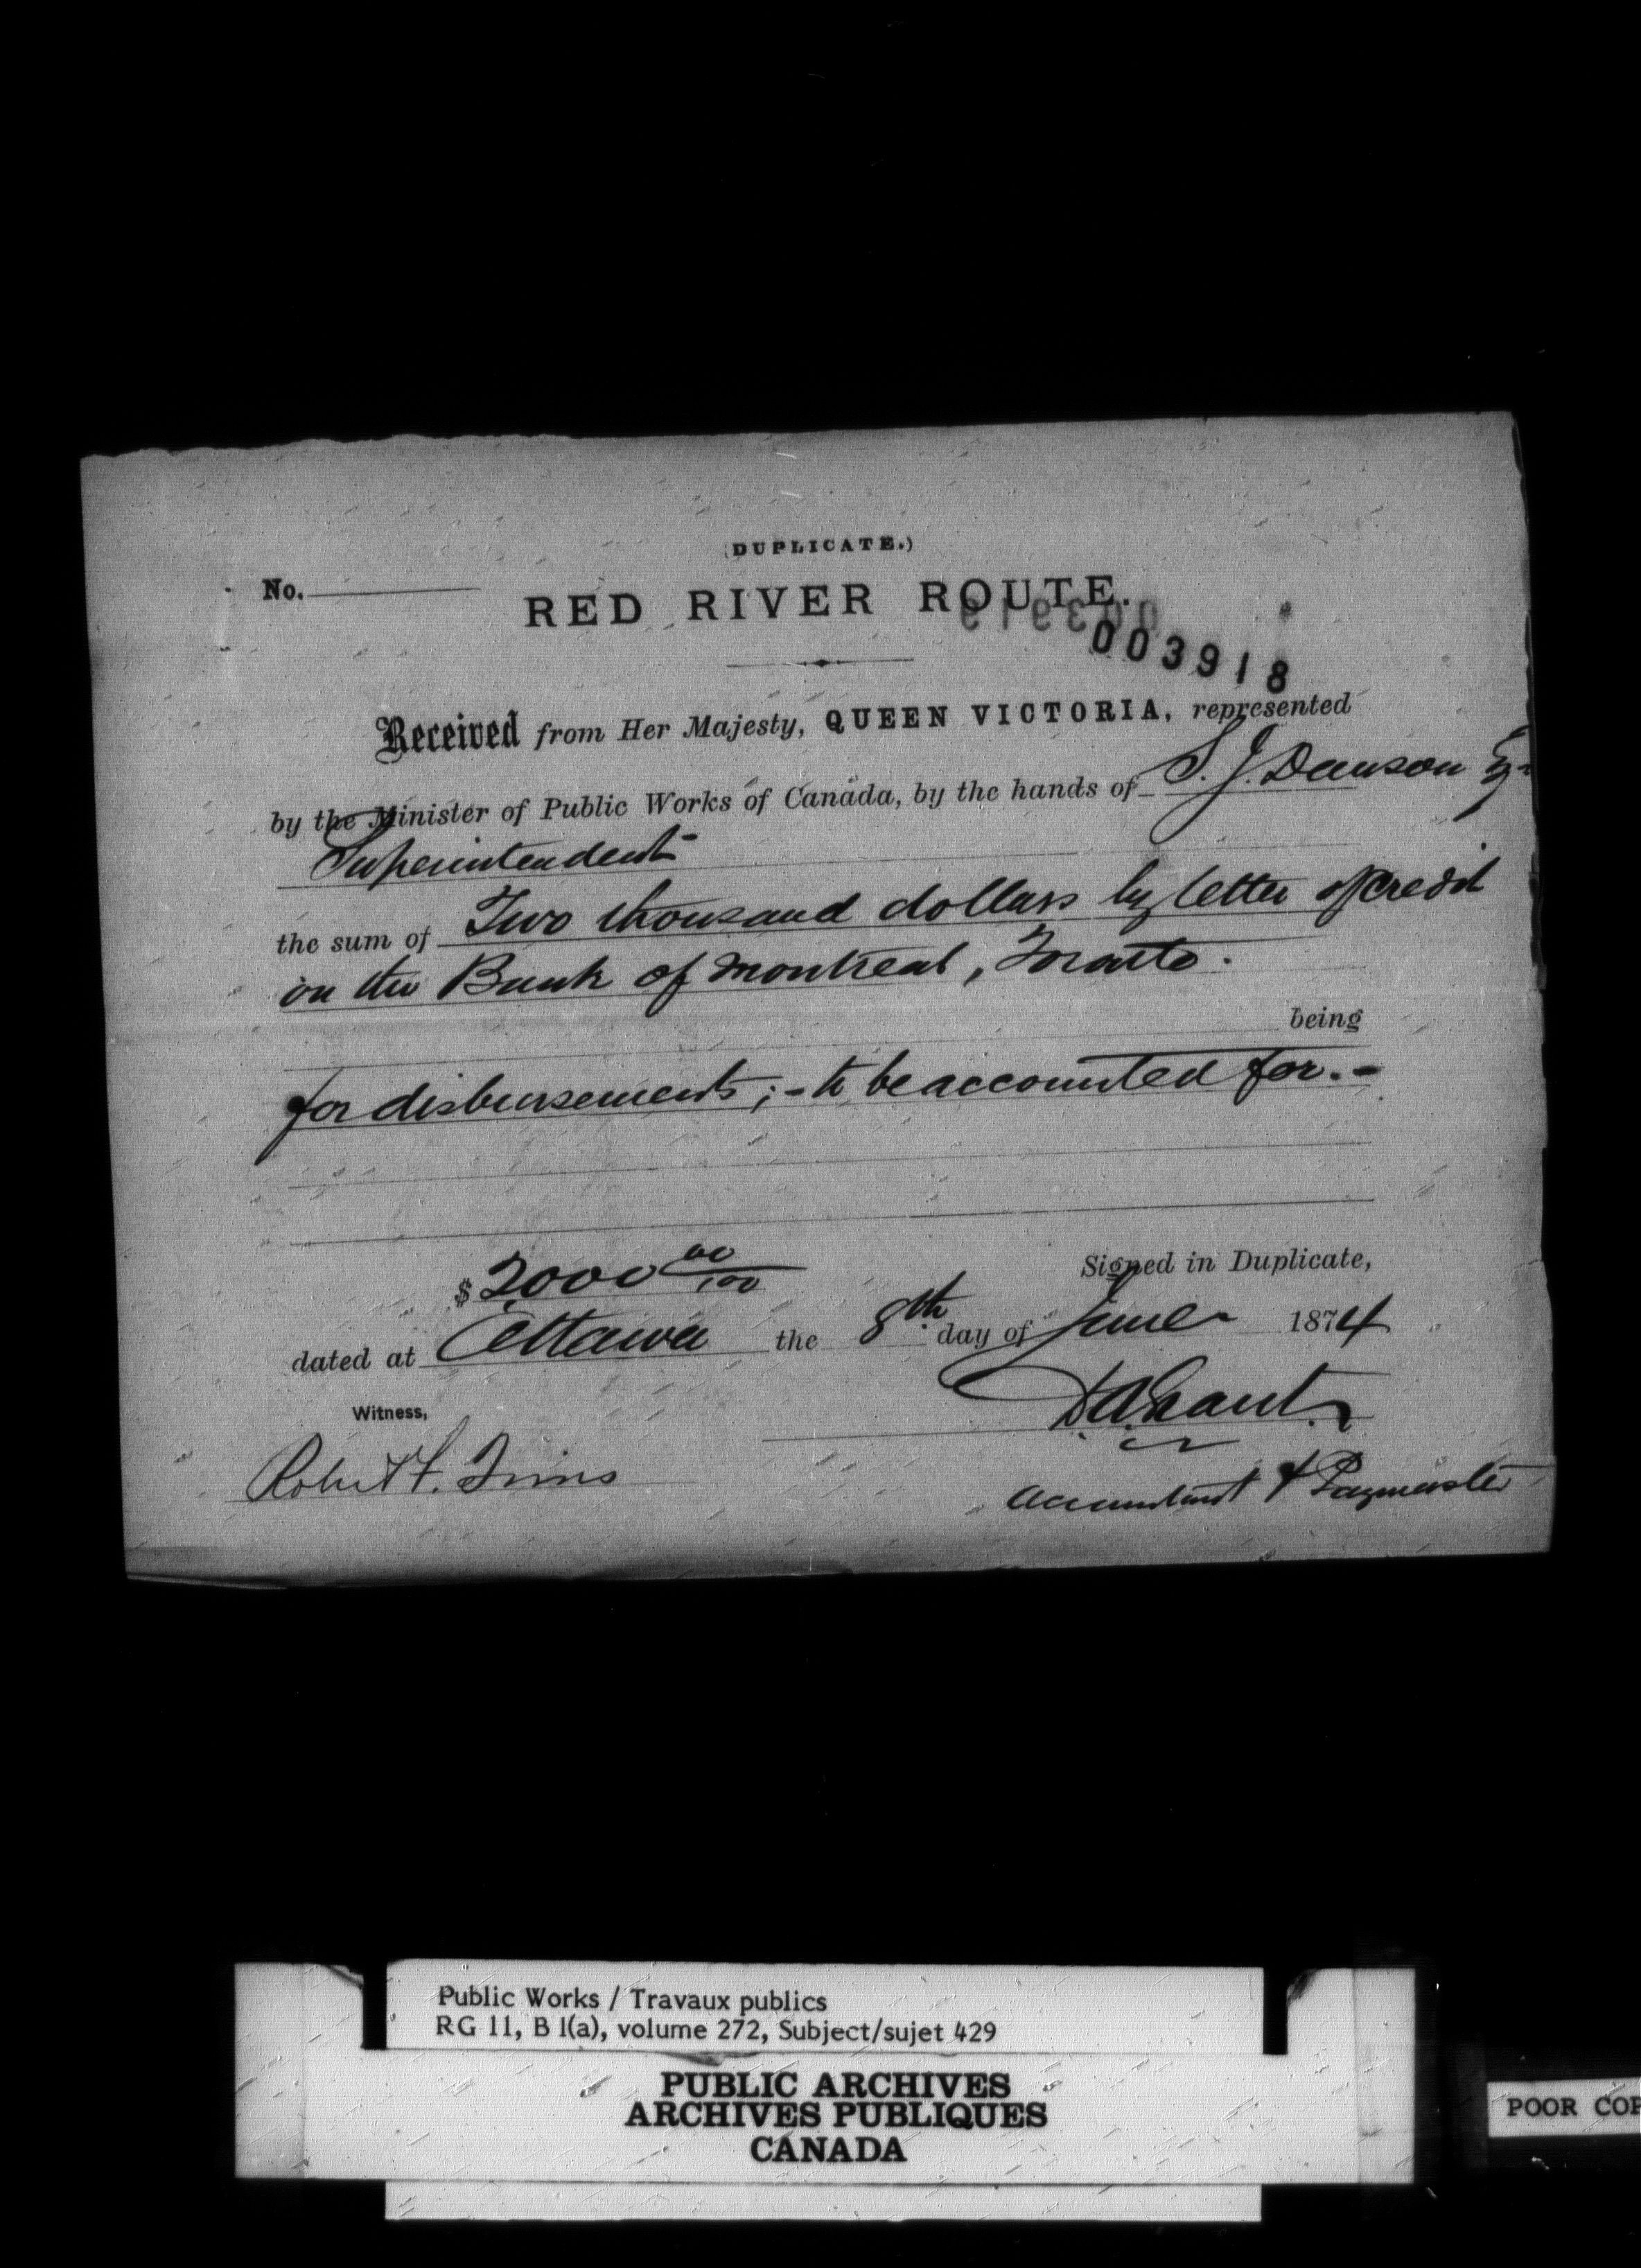 (DUPLICATE.)
No.
RED RIVER ROUTE.
003918
Received from Her Majesty, QUEEN VICTORIA, represented
by the Minister of Public Works of Canada, by the hands of S. J. Dawson Esq.
Superintendent
the sum of Two thousand dollars by letter of credit
on the Bank of Montreal, Toronto.
being
for disbursements; - to be accounted for. -
$ 2000 00/100
Signed in Duplicate,
dated at Ottawa the 8th day of June 1874
Witness,
D.A. Grant.
Robert F.
Accountant & Paymaster
Public Works / Travaux publics
RG 11, B 1(a), volume 272, Subject/sujet 429
PUBLIC ARCHIVES
ARCHIVES PUBLIQUES
CANADA
POOR COP